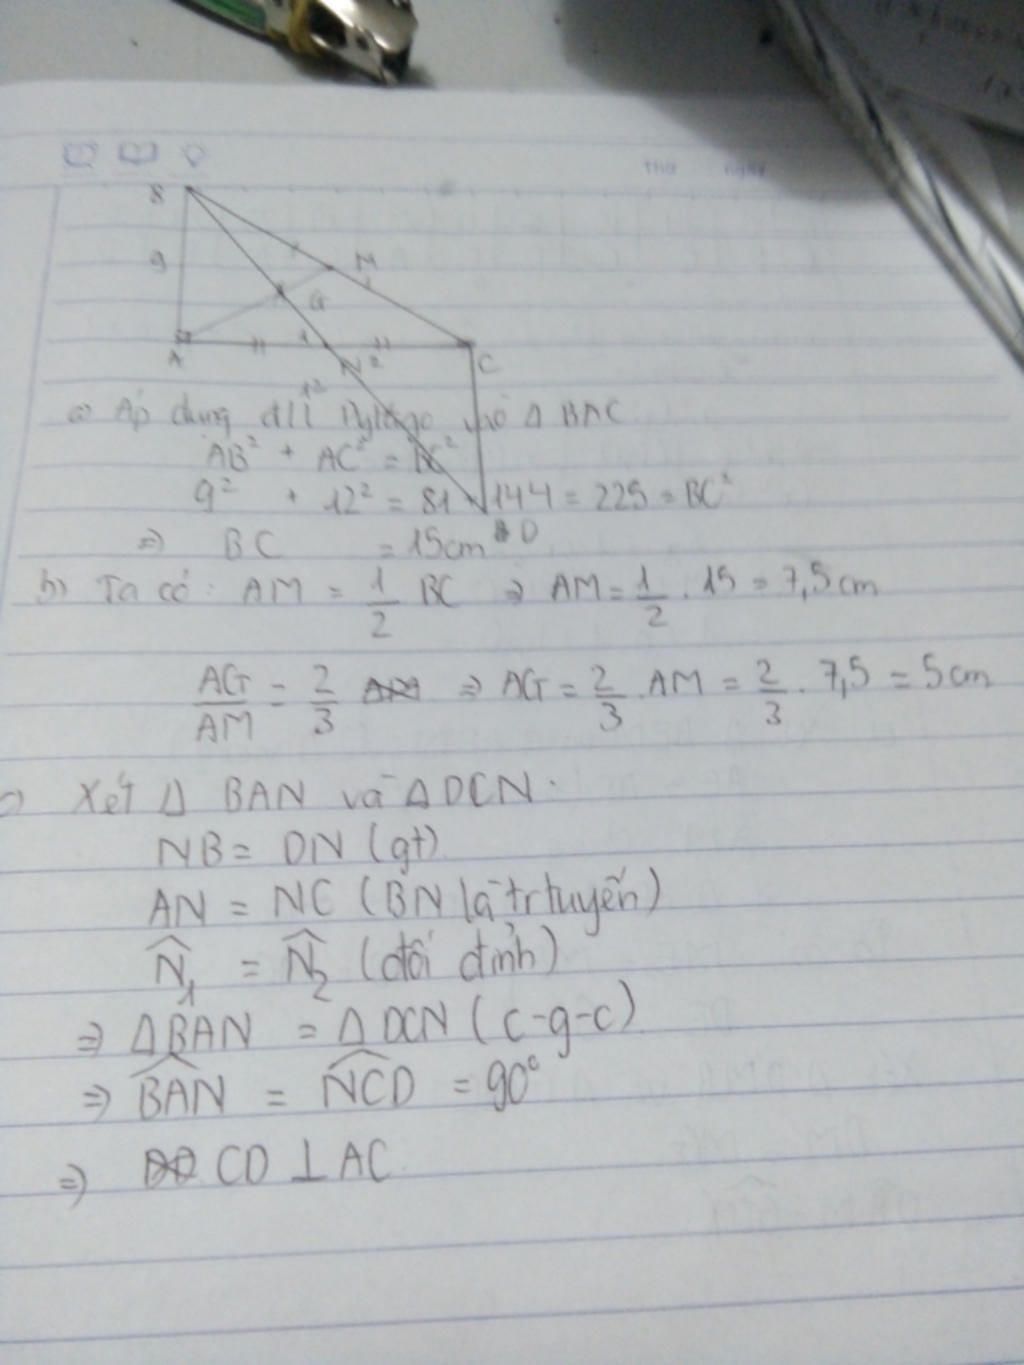 Thứ ngày
B
9
M
G
A
1
N 2
C
12
a) Áp dụng đlí Pytago vào Δ BAC
AB² + AC² = BC²
9² + 12² = 81 144 = 225 = BC²
=> BC = 15cm
D
b) Ta có: AM = 1/2 BC => AM = 1/2 . 15 = 7,5cm
AG/AM = 2/3 => AG = 2/3 . AM = 2/3 . 7,5 = 5cm
c) Xét Δ BAN và Δ DCN.
NB = DN (gt)
AN = NC (BN là trtuyến)
N̂₁ = N̂₂ (đối đỉnh)
=> Δ BAN = Δ DCN (c-g-c)
=> BAN̂ = NCD̂ = 90°
=> CD ⊥ AC